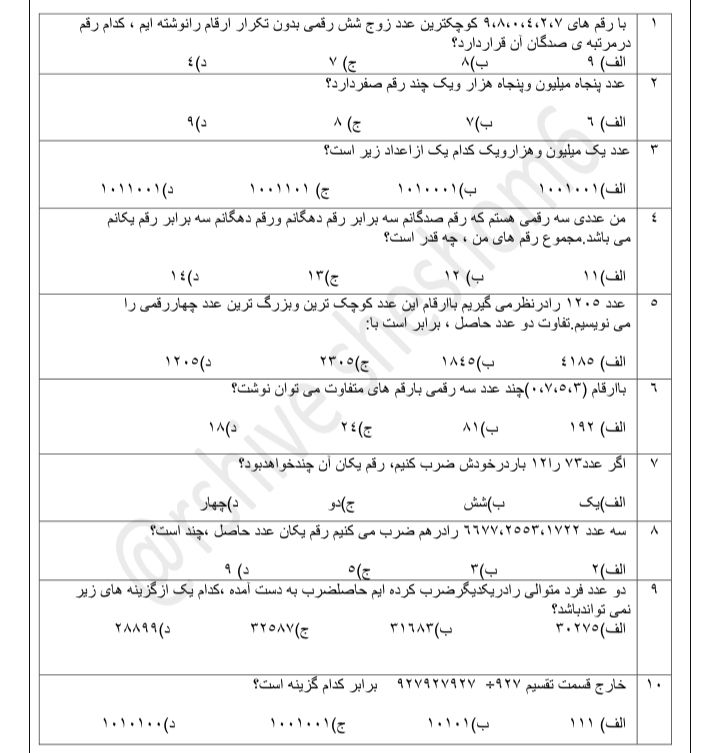 ۱ با رقم های ۹،۸،۰،٤،۲،۷ کوچکترین عدد زوج شش رقمی بدون تکرار ارقام رانوشته ایم ، کدام رقم
درمرتبه ی صدگان آن قراردارد؟
الف) ۹ ب)۸ ج) ۷ د)٤
۲ عدد پنجاه میلیون وپنجاه هزار ویک چند رقم صفردارد؟
الف) ٦ ب)۷ ج) ۸ د)۹
۳ عدد یک میلیون وهزارویک کدام یک ازاعداد زیر است؟
الف)۱۰۰۱۰۰۱ ب)۱۰۱۰۰۰۱ ج) ۱۰۰۱۱۰۱ د)۱۰۱۱۰۰۱
٤ من عددی سه رقمی هستم که رقم صدگانم سه برابر رقم دهگانم ورقم دهگانم سه برابر رقم یکانم
می باشد.مجموع رقم های من ، چه قدر است؟
الف)۱۱ ب) ۱۲ ج)۱۳ د)۱٤
۵ عدد ۱۲۰۵ رادرنظرمی گیریم باارقام این عدد کوچک ترین وبزرگ ترین عدد چهاررقمی را
می نویسیم.تفاوت دو عدد حاصل ، برابر است با:
الف) ٤۱۸۵ ب)۱۸٤۵ ج)۲۳۰۵ د)۱۲۰۵
٦ باارقام (۰،۷،۵،۳)چند عدد سه رقمی بارقم های متفاوت می توان نوشت؟
الف) ۱۹۲ ب)۸۱ ج)۲٤ د)۱۸
۷ اگر عدد۷۳ را۱۲۱ باردرخودش ضرب کنیم، رقم یکان آن چندخواهدبود؟
الف)یک ب)شش ج)دو د)چهار
۸ سه عدد ٦٦۷۷،۲۵۵۳،۱۷۲۲ رادرهم ضرب می کنیم رقم یکان عدد حاصل ،چند است؟
الف)۲ ب)۳ ج)۵ د) ۹
۹ دو عدد فرد متوالی رادریکدیگرضرب کرده ایم حاصلضرب به دست آمده ،کدام یک ازگزینه های زیر
نمی تواندباشد؟
الف)۳۰۲۷۵ ب)۳۱٦۸۳ ج)۳۲۵۸۷ د)۲۸۸۹۹
۱۰ خارج قسمت تقسیم ۹۲۷÷ ۹۲۷۹۲۷۹۲۷ برابر کدام گزینه است؟
الف) ۱۱۱ ب)۱۰۱۰۱ ج)۱۰۰۱۰۰۱ د)۱۰۱۰۱۰۰
@rshive sheshom6